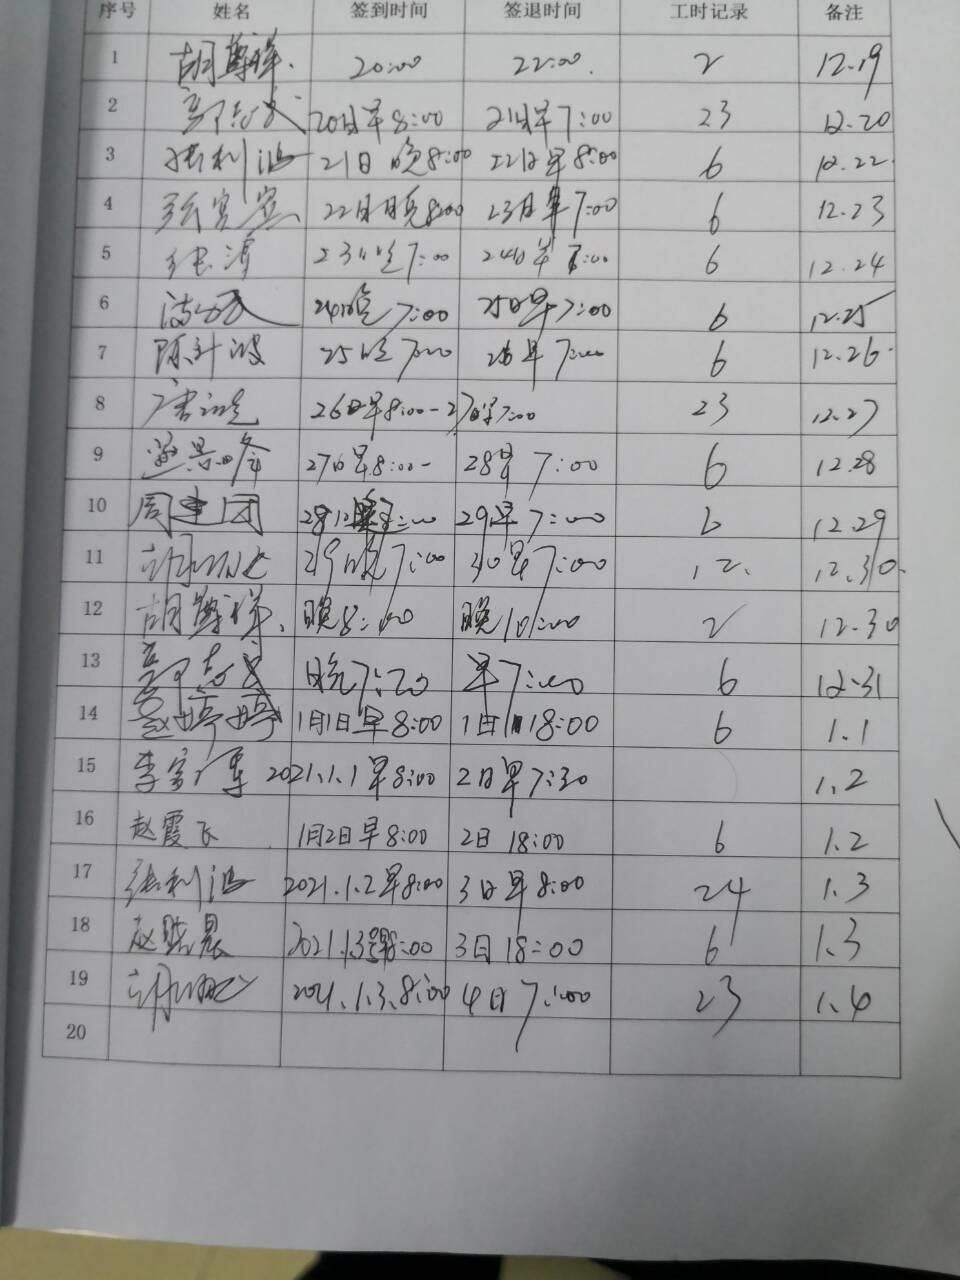 序号 姓名 签到时间 签退时间 工时记录 备注
1 胡尊祥. 20:00 22:00. 2 12.19
2 20日早8:00 21日早7:00 23 12.20
3 张利鸿 21日晚8:00 22日早8:00 6 12.22.
4 22日晚8:00 23日早7:00 6 12.23
5 张涛 23晚7:00 24日早7:00 6 12.24
6 24晚7:00 25日早7:00 6 12.25
7 25晚7:00 26早7:00 6 12.26
8 26日早8:00-27日早7:00 23 12.27
9 27日早8:00- 28早7:00 6 12.28
10 周建团 28 8:00 29早7:00 6 12.29
11 29晚7:00 30早7:00 12. 12.30.
12 胡尊祥. 晚8:00 晚10:00 2 12.30
13 晚7:20 早7:00 6 12.31
14 赵婷婷 1月1日早8:00 1日 18:00 6 1.1
15 李富军 2021.1.1早8:00 2日早7:30 1.2
16 赵霞飞 1月2日早8:00 2日18:00 6 1.2
17 张利鸿 2021.1.2早8:00 3日早8:00 24 1.3
18 赵晓晨 2021.1.3 8:00 3日18:00 6 1.3
19 2021.1.3.8:00 4日7:00 23 1.4
20